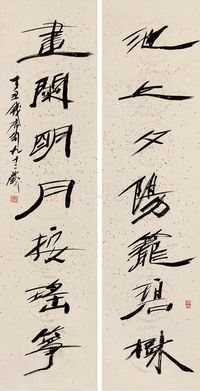 池上夕陽籠碧樹
畫闌明月按瑤箏
丁丑錢君匋九十二歲